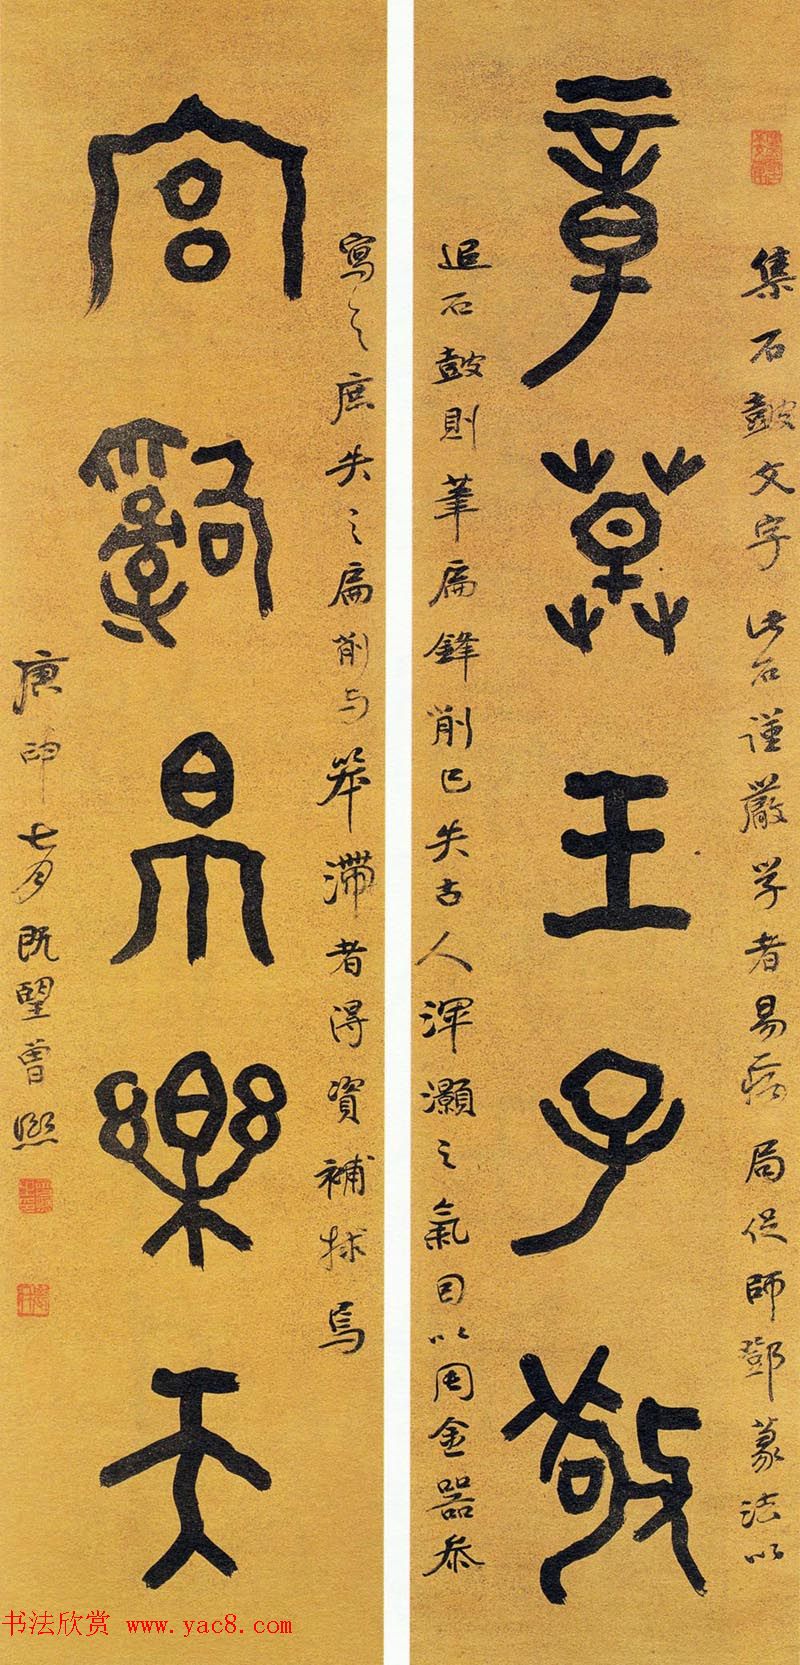 集石鼓文字此石謹嚴学者易病局促師鄧篆法以
章草王子敬
追石鼓則筆扁鋒削已失古人渾灝之氣因以周金器參
寫之庶失之扁削与笨滯者得資補捄焉
宮辭帛樂天
庚申七月既望曾熙
书法欣赏 www.yac8.com